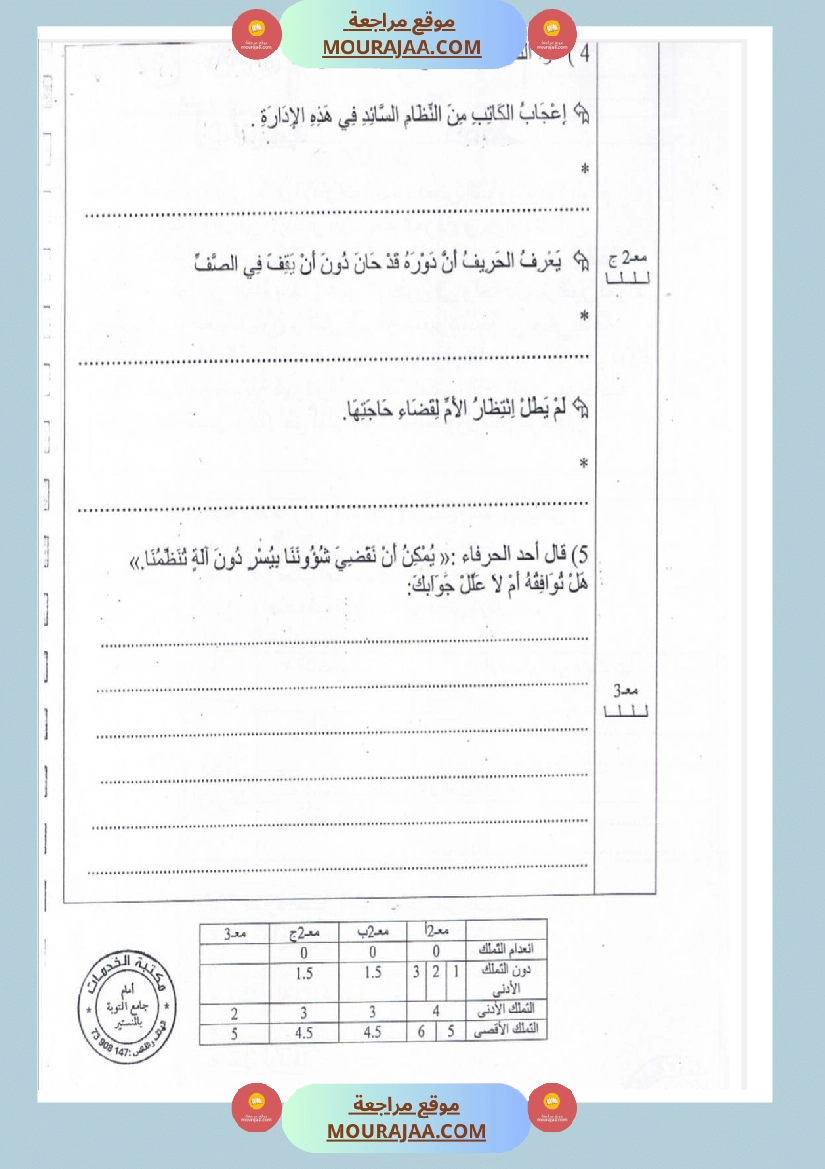 موقع مراجعة
MOURAJAA.COM
4 )
إعْجَابُ الكَاتِبِ مِنَ النِّظَامِ السَّائِدِ فِي هَذِهِ الإدَارَةِ .
*
معـ2 ج
يَعْرِفُ الحَرِيفُ أنَّ دَوْرَهُ قَدْ حَانَ دُونَ أنْ يَقِفَ فِي الصَّفِّ
*
لَمْ يَطُلْ اِنْتِظَارُ الأمِّ لِقَضَاءِ حَاجَتِهَا.
*
5) قال أحد الحرفاء :« يُمْكِنُ أنْ نَقْضِيَ شُؤُونَنَا بِيُسْرٍ دُونَ آلَةٍ تُنَظِّمُنَا.»
هَلْ تُوَافِقُهُ أمْ لاَ عَلِّلْ جَوَابكَ:
معـ3
معـ2أ معـ2ب معـ2ج معـ3
انعدام التملك 0 0 0
دون التملك الأدنى 1 2 3 1.5 1.5
التملك الأدنى 4 3 3 2
التملك الأقصى 5 6 4.5 4.5 5
مكتبة الخدمات
أمام
جامع التوبة
بالمنستير
73 908 147
موقع مراجعة
MOURAJAA.COM